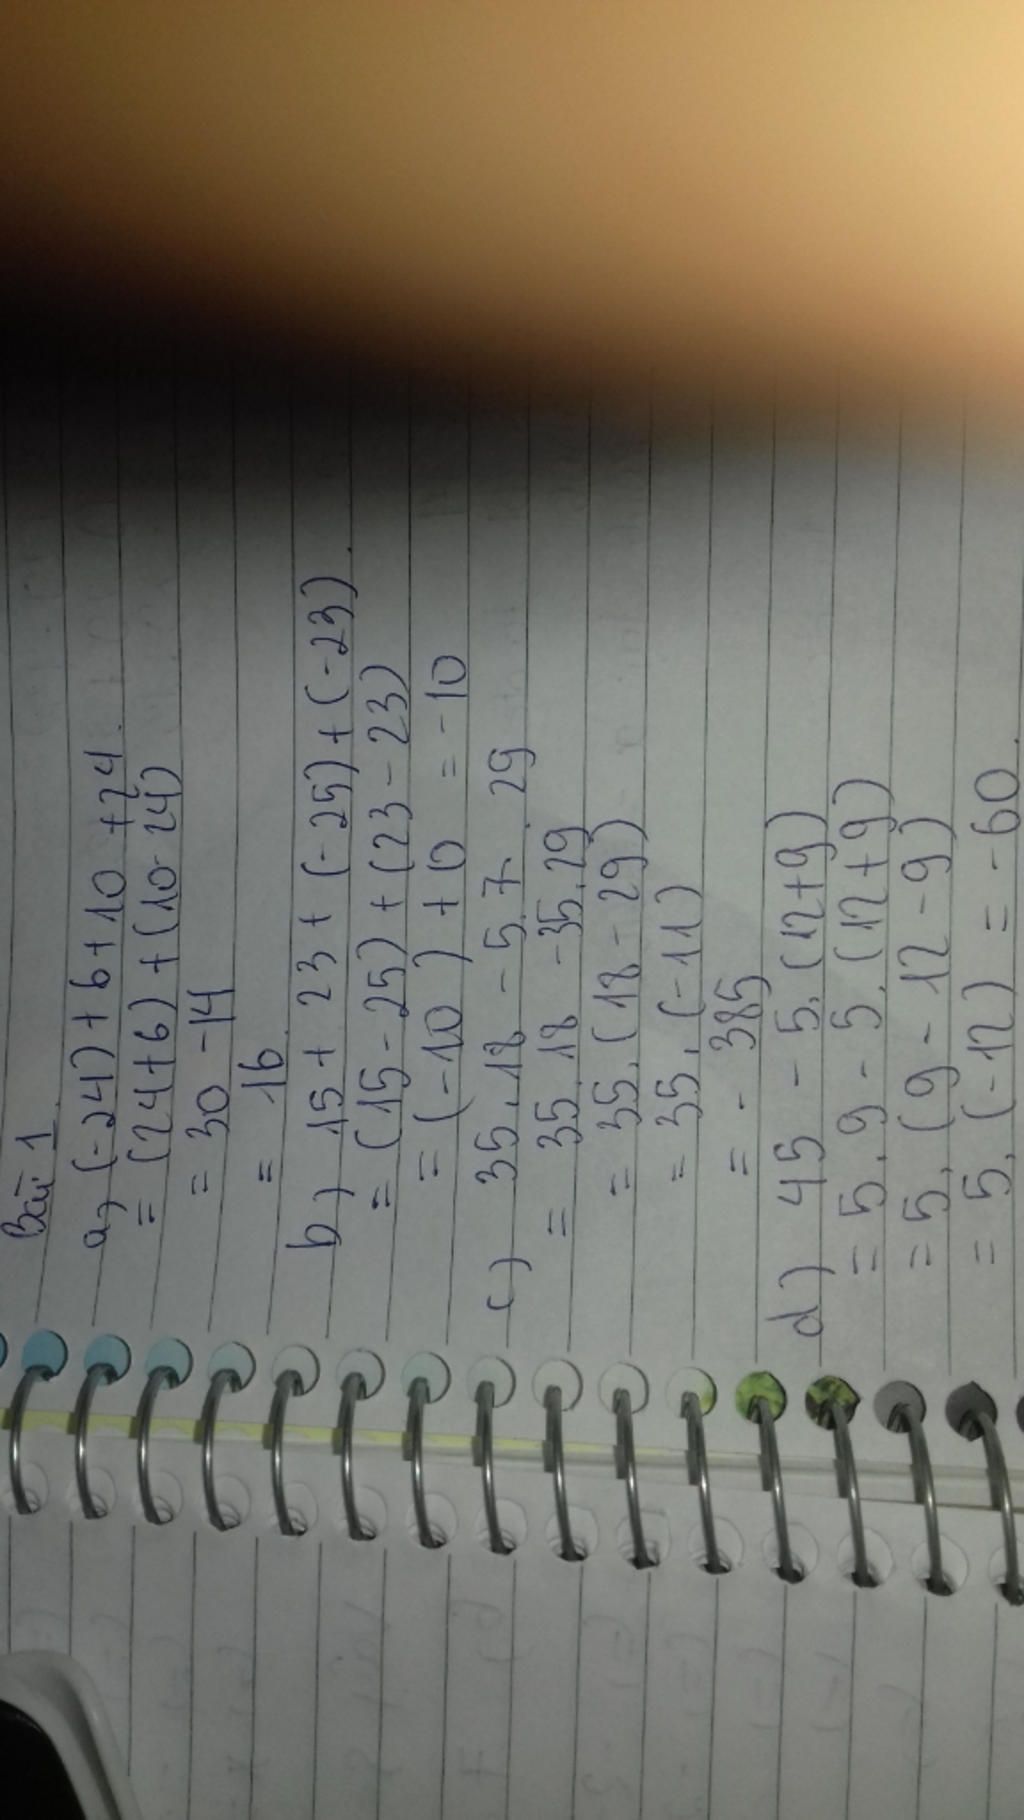 Bài 1
a, (-24) + 6 + 10 + 24
= (24+6) + (10-24)
= 30 - 14
= 16
b) 15 + 23 + (-25) + (-23)
= (15 - 25) + (23 - 23)
= (-10) + 0 = -10
c) 35.18 - 5.7.29
= 35.18 - 35.29
= 35.(18 - 29)
= 35.(-11)
= -385
d) 45 - 5.(12+9)
= 5.9 - 5.(12+9)
= 5.(9 - 12 - 9)
= 5.(-12) = -60